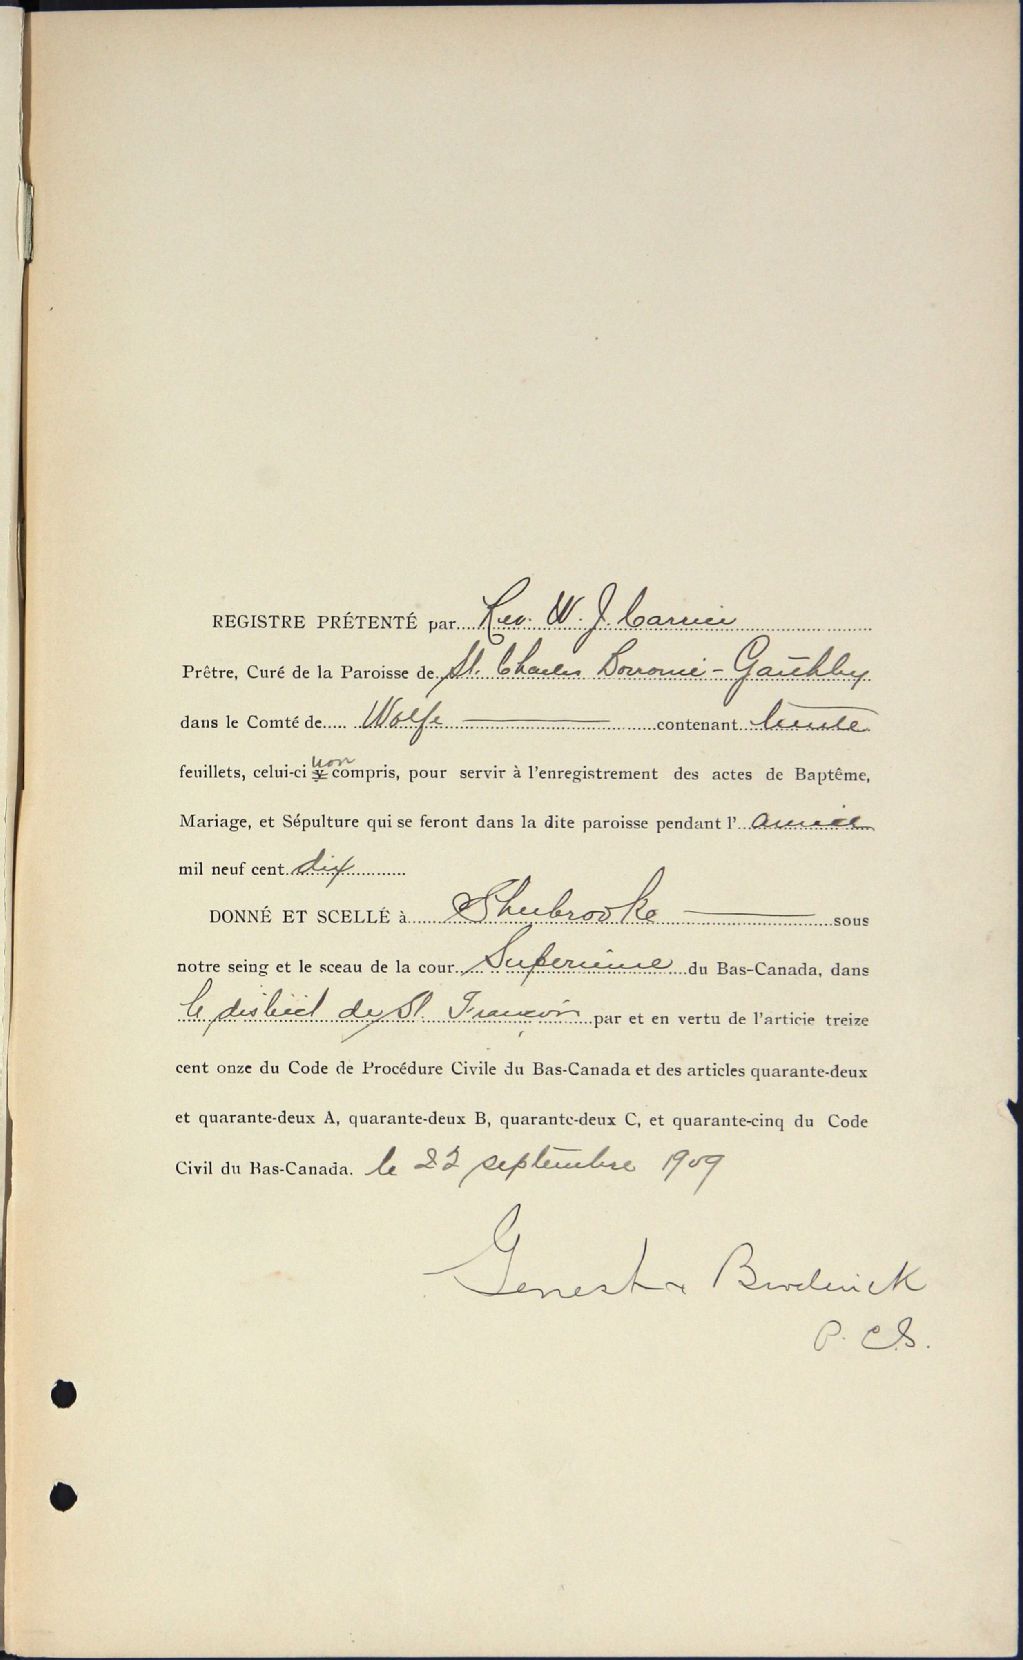 REGISTRE PRÉTENTÉ par Rev. W. J. Carrier
Prêtre, Curé de la Paroisse de St. Charles Borromé - Gauthby
dans le Comté de Wolfe contenant trente
feuillets, celui-ci non compris, pour servir à l'enregistrement des actes de Baptême,
Mariage, et Sépulture qui se feront dans la dite paroisse pendant l' année
mil neuf cent dix
DONNÉ ET SCELLÉ à Sherbrooke sous
notre seing et le sceau de la cour Superieure du Bas-Canada, dans
le district de St. François par et en vertu de l'articie treize
cent onze du Code de Procédure Civile du Bas-Canada et des articles quarante-deux
et quarante-deux A, quarante-deux B, quarante-deux C, et quarante-cinq du Code
Civil du Bas-Canada. le 22 septembre 1909
Genest & Broderick
P. C.S.